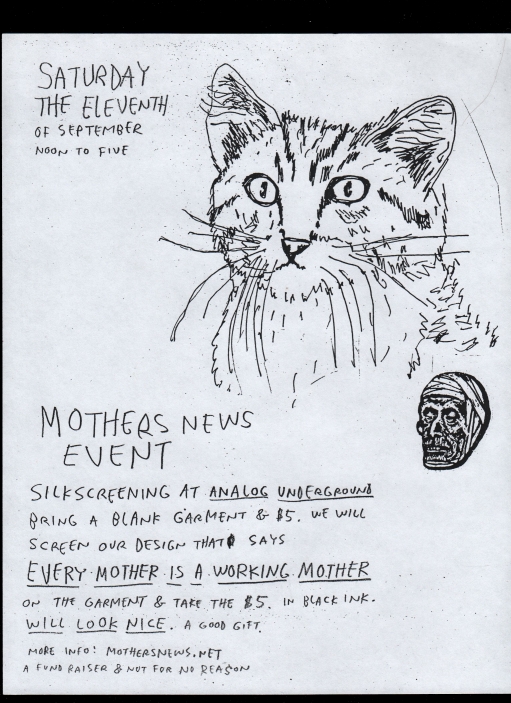 SATURDAY
THE ELEVENTH
OF SEPTEMBER
NOON TO FIVE
MOTHERS NEWS
EVENT
SILKSCREENING AT ANALOG UNDERGROUND
BRING A BLANK GARMENT & $5. WE WILL
SCREEN OUR DESIGN THAT SAYS
EVERY MOTHER IS A WORKING MOTHER
ON THE GARMENT & TAKE THE $5. IN BLACK INK.
WILL LOOK NICE. A GOOD GIFT.
MORE INFO: MOTHERSNEWS.NET
A FUND RAISER & NOT FOR NO REASON